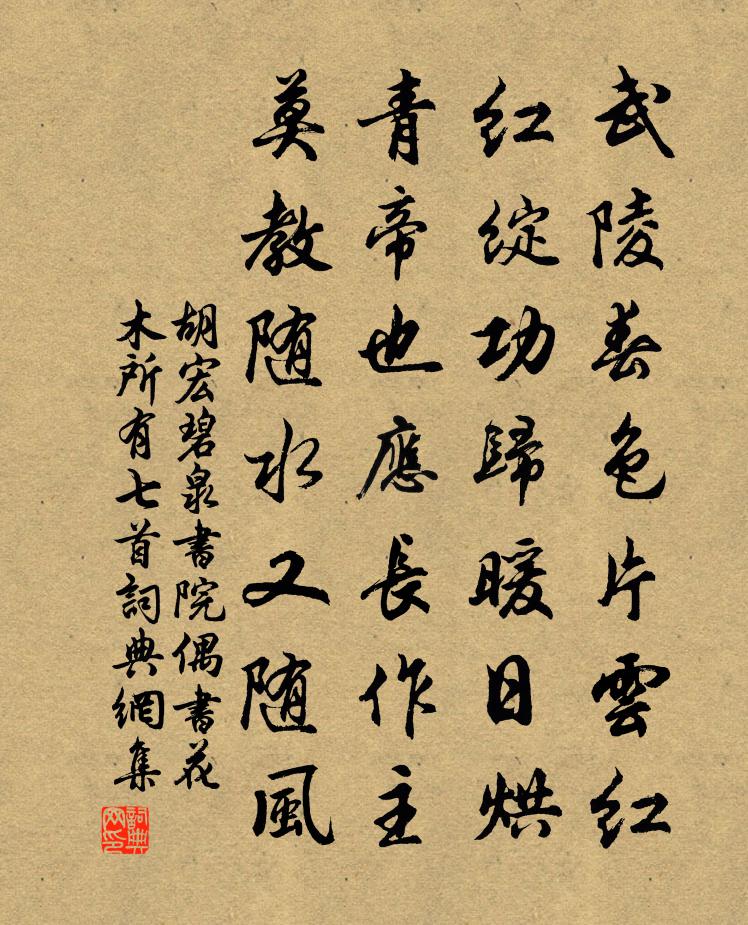 武陵春色片雲紅
紅綻功歸暖日烘
青帝也應長作主
莫教随水又随風
胡宏碧泉書院偶書花
木所有七首詞典網集
詞典網印